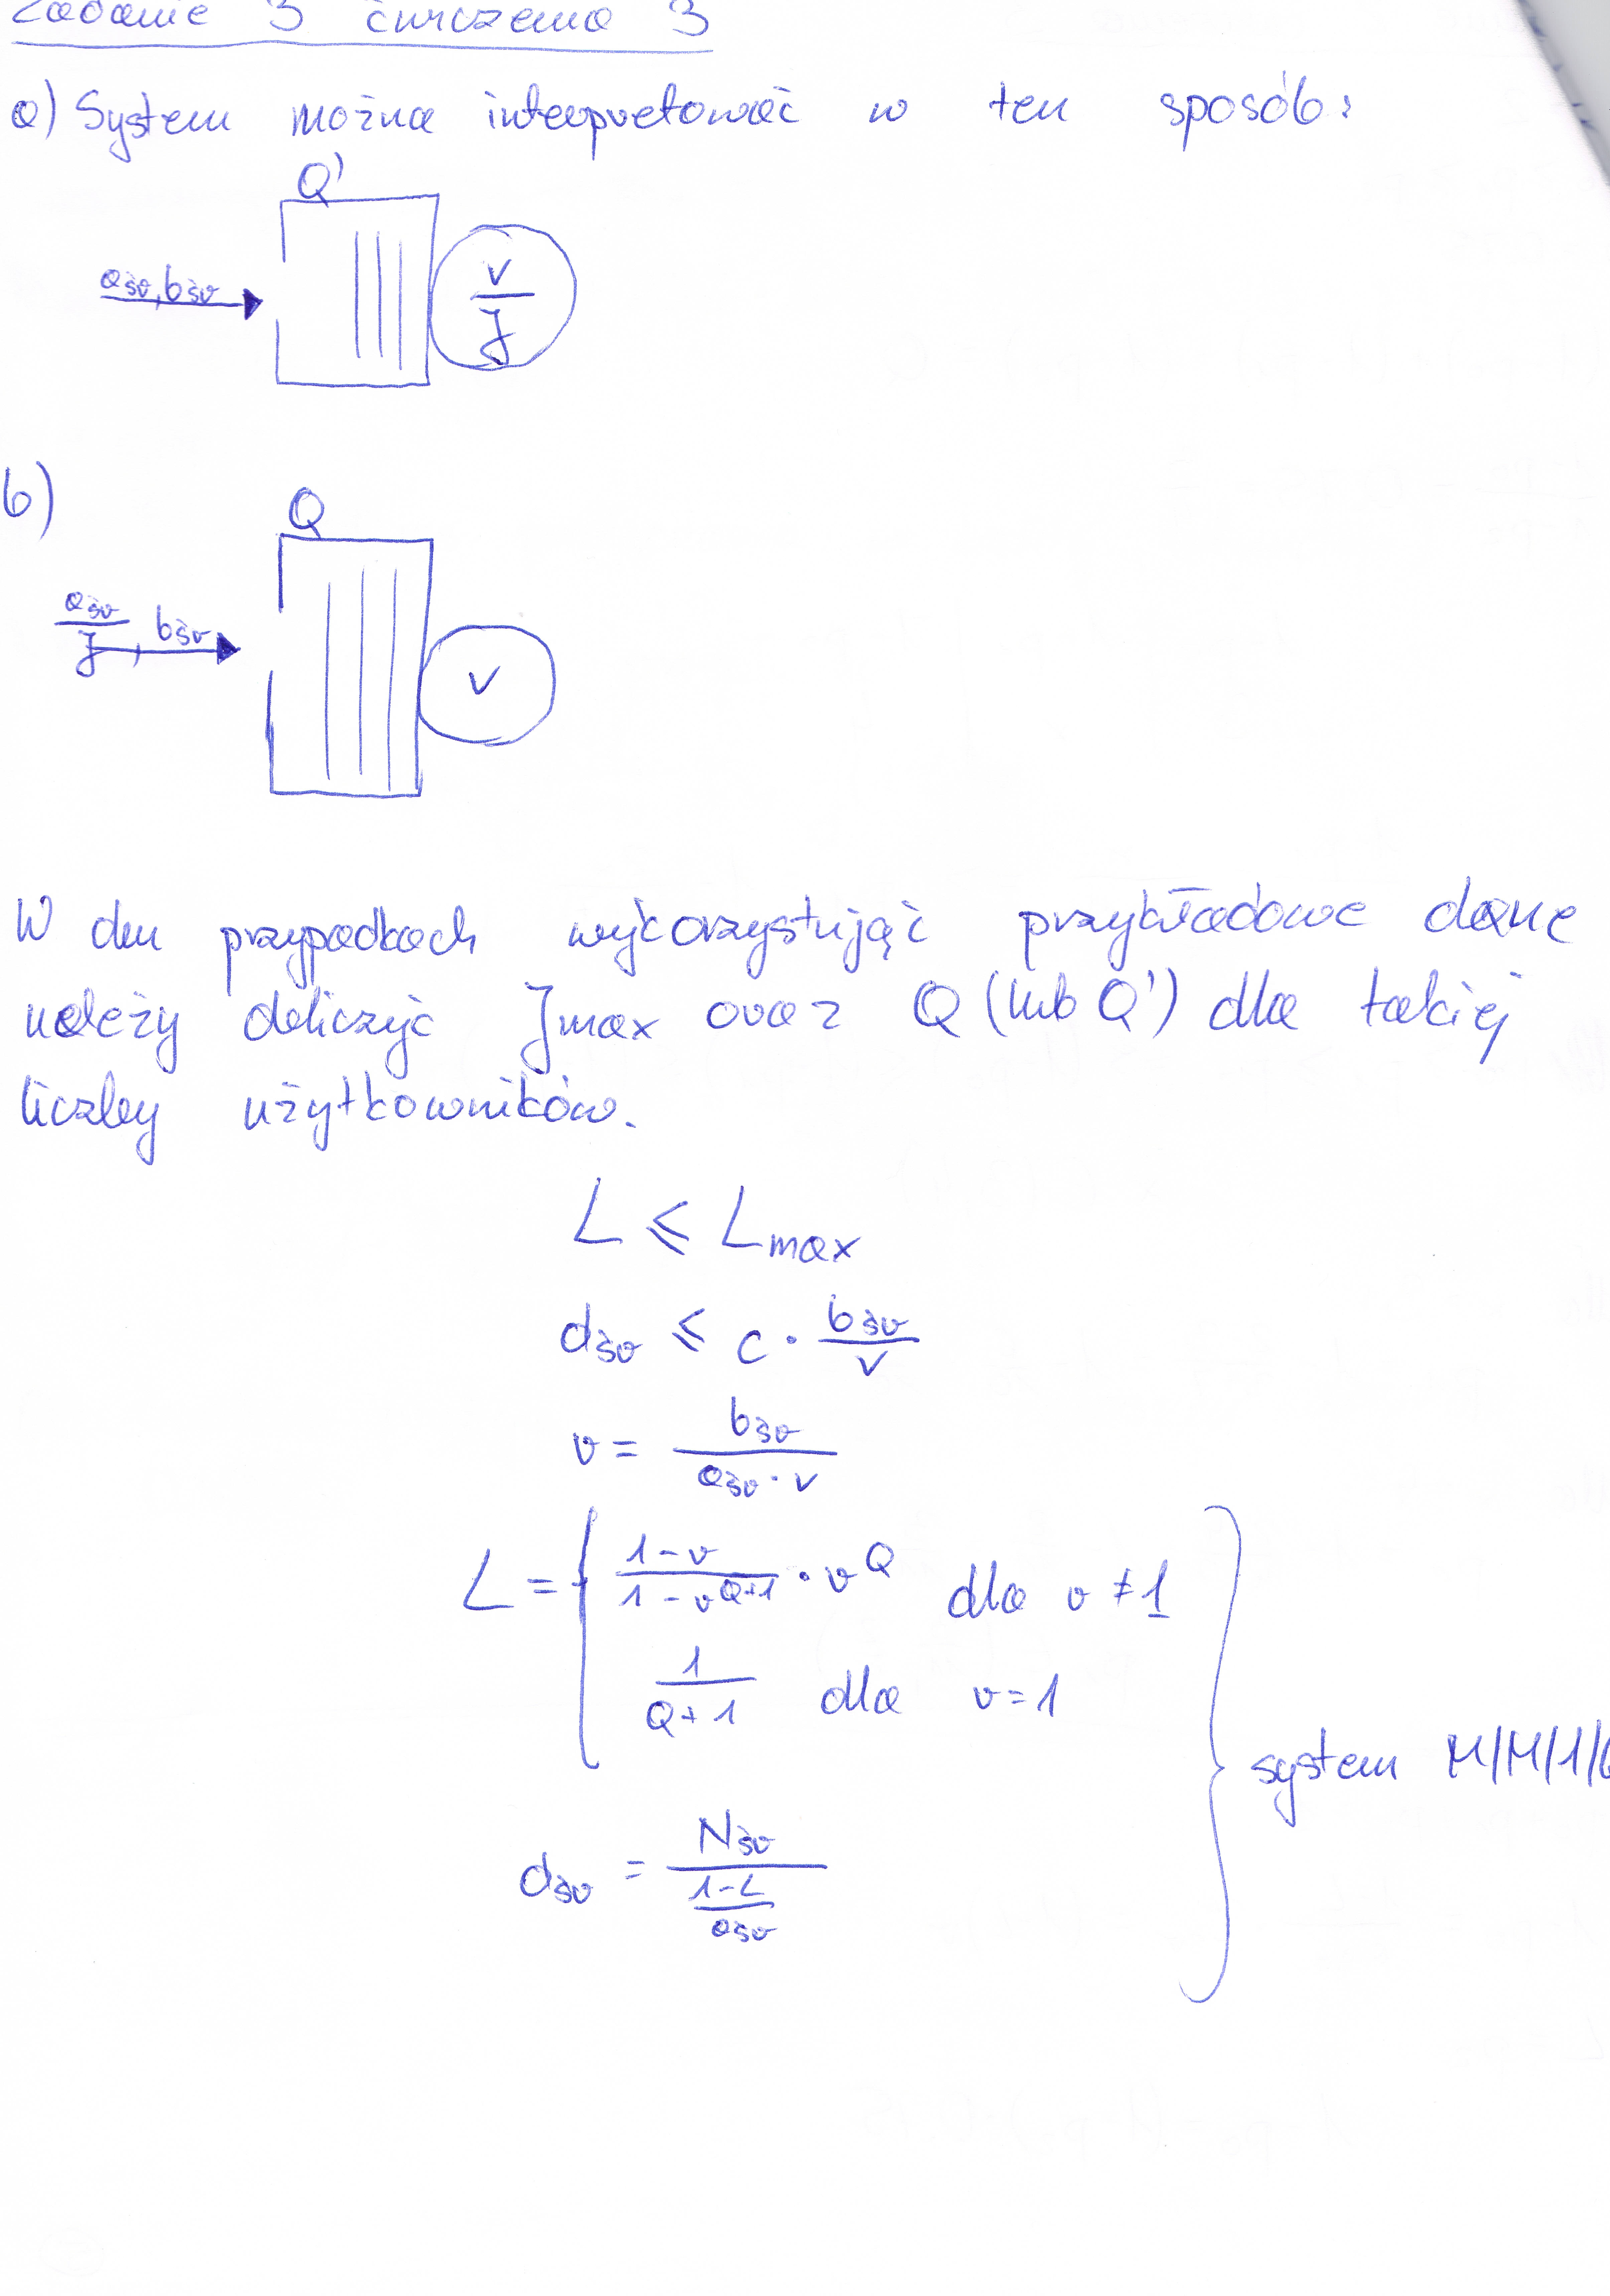 Zadanie 3 ćwiczenia 3
a) System można interpretować w ten sposób:
Q'
aśr, bśr
v/J
b)
Q
aśr/J, bśr
v
W obu przypadkach wykorzystując przykładowe dane
należy obliczyć Jmax oraz Q (lub Q') dla takiej
liczby użytkowników.
L ≤ Lmax
dśr ≤ c · bśr/v
r = bśr/(aśr · v)
L = { (1-r)/(1-r^(Q+1)) · r^Q dla r ≠ 1
1/(Q+1) dla r = 1
system M/M/1/
dśr = Nśr/((1-L)/aśr)